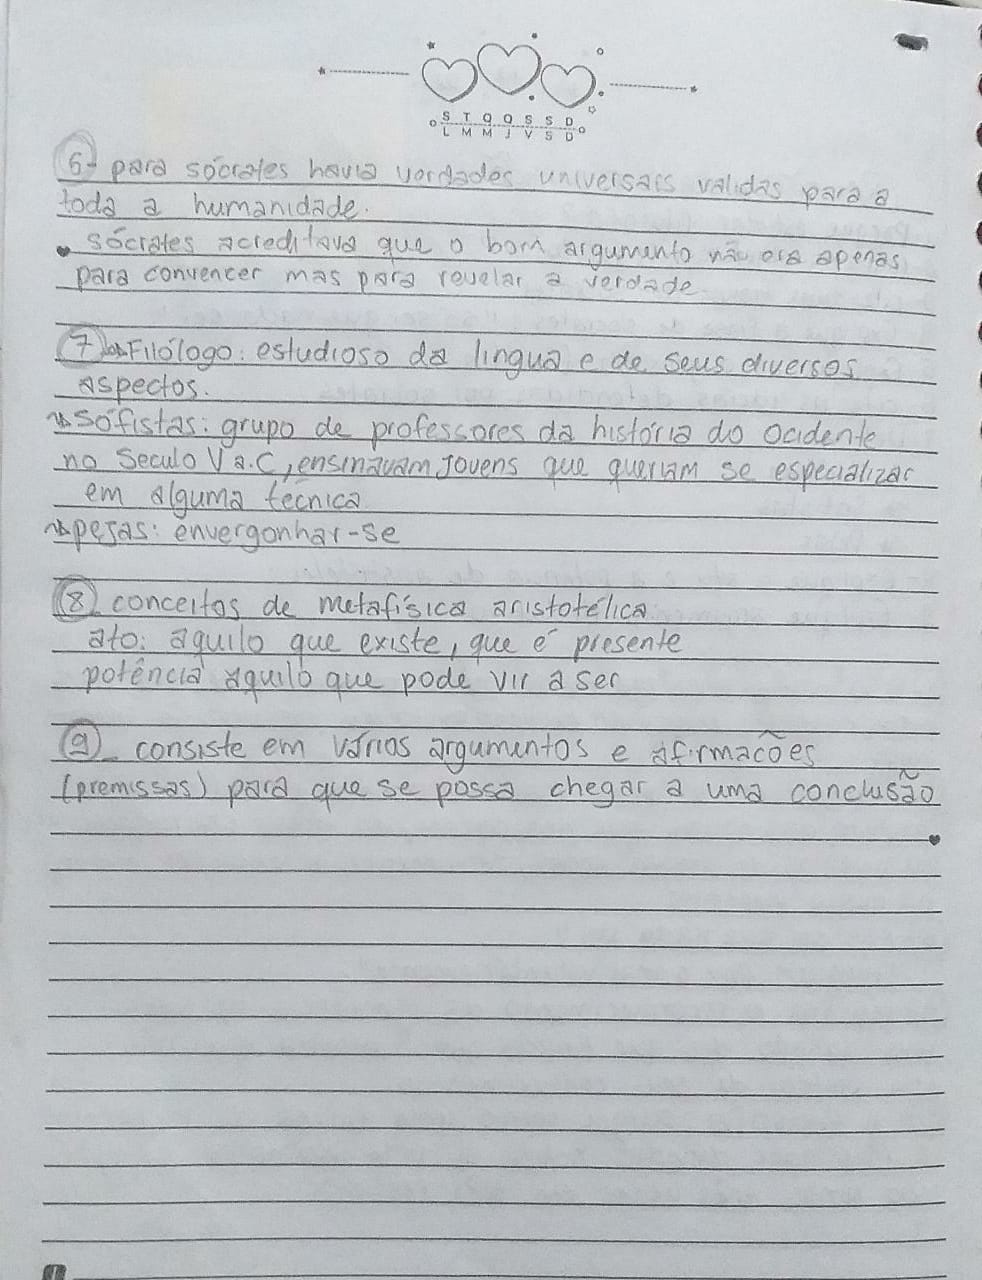 S T Q Q S S D
L M M J V S D
6- para sócrates havia verdades universais validas para a
toda a humanidade.
sócrates acreditava que o bom argumento não era apenas
para convencer mas para revelar a verdade.
7 Filólogo: estudioso da lingua e de seus diversos
aspectos.
sofistas: grupo de professores da história do ocidente
no Seculo V a.C, ensinavam Jovens que queriam se especializar
em alguma técnica
pejas: envergonhar-se
8 conceitos de metafísica aristotélica
ato: aquilo que existe, que é presente
potência aquilo que pode vir a ser
9- consiste em vários argumentos e afirmacões
(premissas) para que se possa chegar a uma conclusão